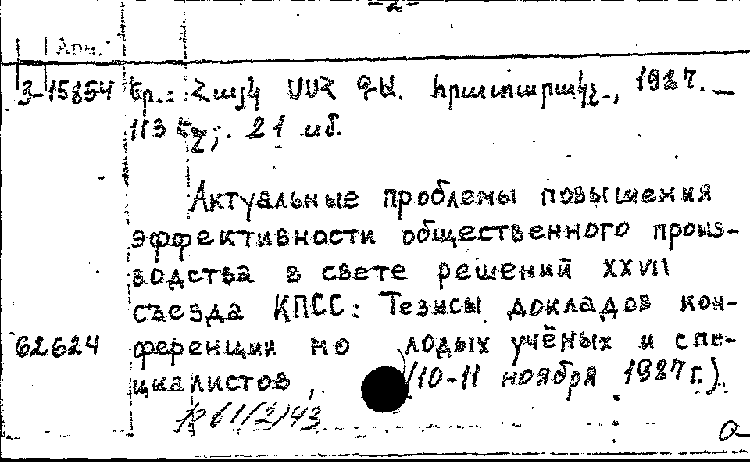 -2-
Арм.
3-15854 Եր.: Հայկ ՍՍՀ ԳԱ. հրատարակչ., 1987. —
113 էջ; 21 սմ.
Актуальные проблемы повышения
эффективности общественного произ-
водства в свете решений XXVII
съезда КПСС: Тезисы докладов кон-
62624 ференции мо лодых учёных и спе-
циалистов, (10-11 ноября 1987 г.).